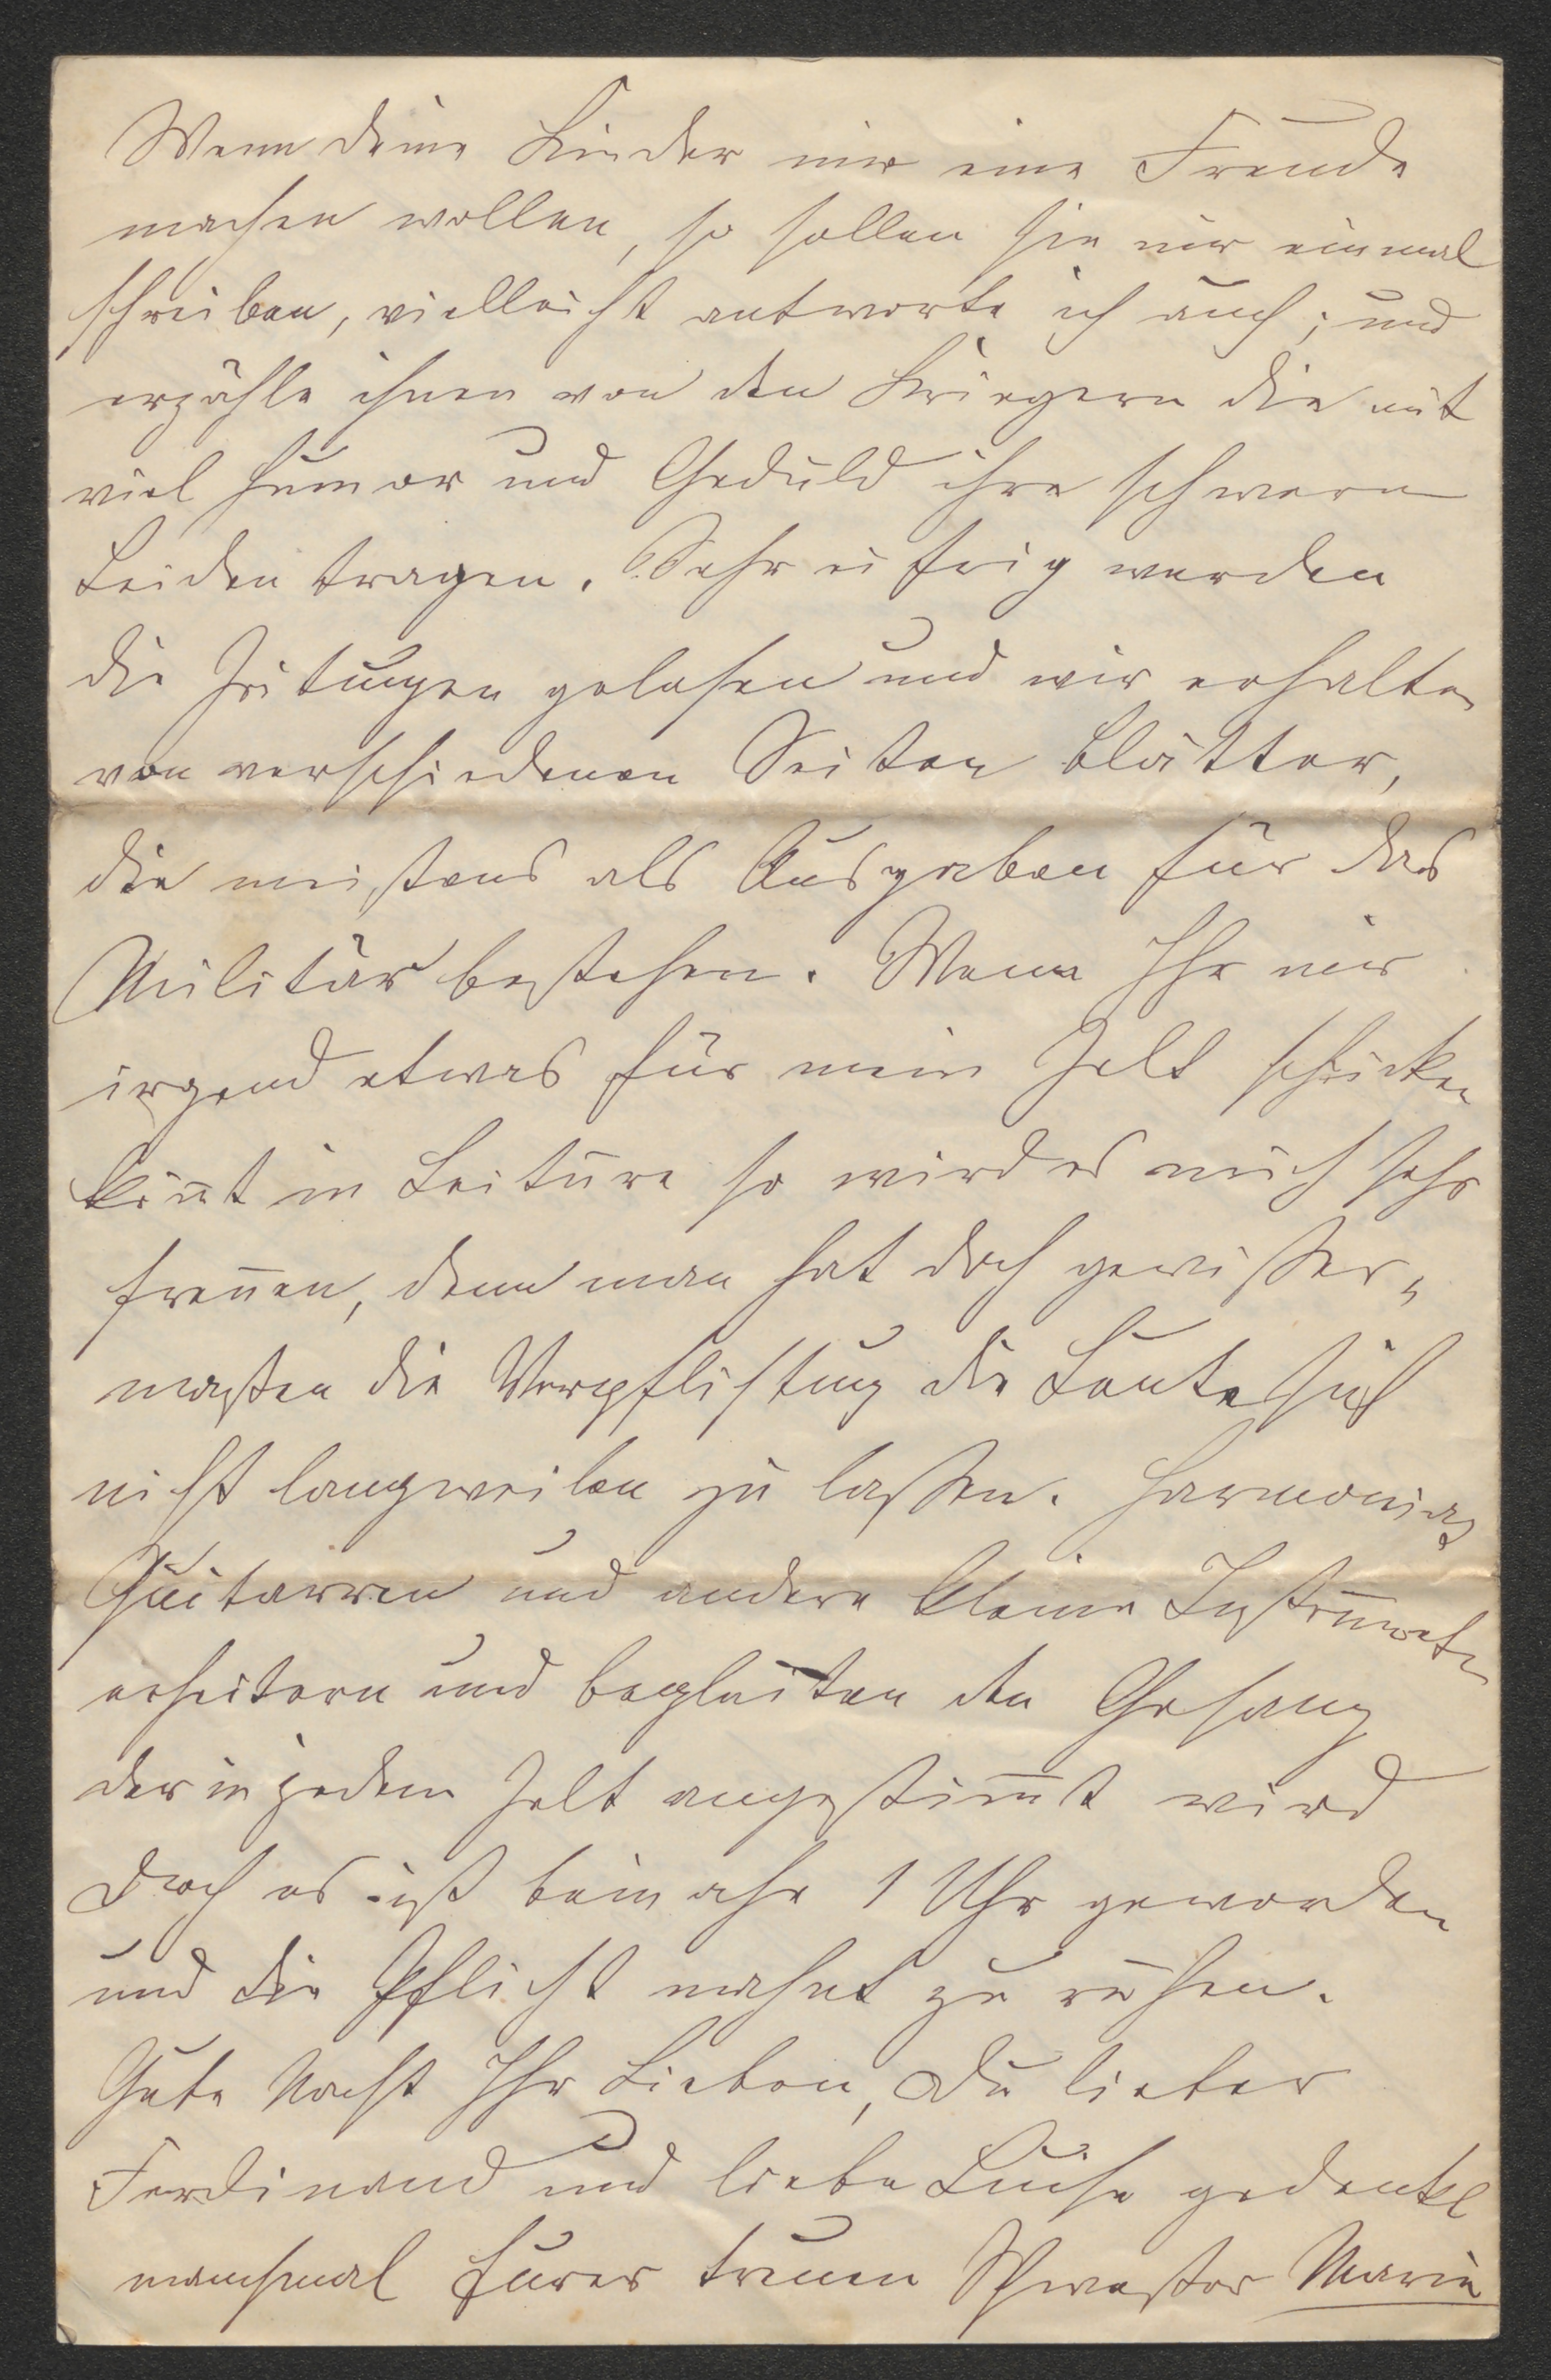 Wenn deine Kinder mir eine Freude
machen wollen, so sollen sie mir einmal
schreiben, vielleicht antworte ich auch; und
erzähle ihnen von den Kriegern die mit
viel Humor und Geduld ihre schwern
Leiden tragen. Sehr eifrig werden
die Zeitungen gelesen und wir erhalten
von verschiedenen Seiten Blätter,
die meistens als Ausgaben für das
Militär bestehen. Wenn Ihr mir
irgend etwas für mein Zelt schicken
könnt in Leitüre so wird es mich sehr
freuen, denn man hat doch gewisser-
maßen die Verpflichtung die Leute sich
nicht langweilen zu lassen. Harmonias
Guitarren und andere kleine Instrumente
erheitern und begleiten den Gesang
der in jedem Zelt angestimmt wird
Doch es ist beinahe 1 Uhr geworden
und die Pflicht mahnt zu ruhen.
Gute Nacht Ihr Lieben, Du lieber
Ferdinand und liebe Luise gedenkt
manchmal Eurer treuen Schwester Marie